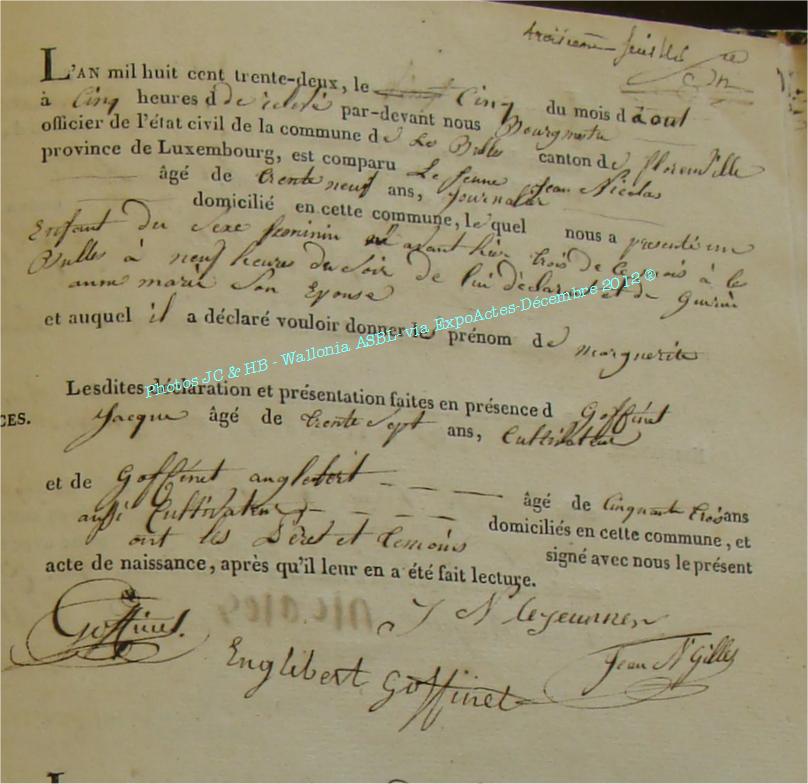 troisieme feuillet
L'AN mil huit cent trente-deux, le Cinq du mois d aout
à Cinq heures d de relevé par-devant nous Bourgmestre
officier de l'état civil de la commune de Les Bulles canton de florenville
province de Luxembourg, est comparu Le Jeune Jean Nicolas
âgé de trente neuf ans, Journalier
domicilié en cette commune, lequel nous a présenté un
Enfant du Sexe feminin né avant hier trois de ce mois à les
Bulles à neuf heures du Soir de lui déclarant et de Guirin
anne marie Son Epouse
et auquel il a déclaré vouloir donner le prénom de marguerite
Photos JC & HB - Wallonia ASBL-via ExpoActes-Décembre 2012®
Lesdites déclaration et présentation faites en présence d Goffinet
CES.
Jacque âgé de trente Sept ans, Cultivateur
et de Goffinet anglebert âgé de Cinquante trois ans
aussi Cultivateur domiciliés en cette commune, et
ont les Père et temoins signé avec nous le présent
acte de naissance, après qu'il leur en a été fait lecture.
Goffinet.
J N leJeunnen
Englibert Goffinet
Jean N Gilles